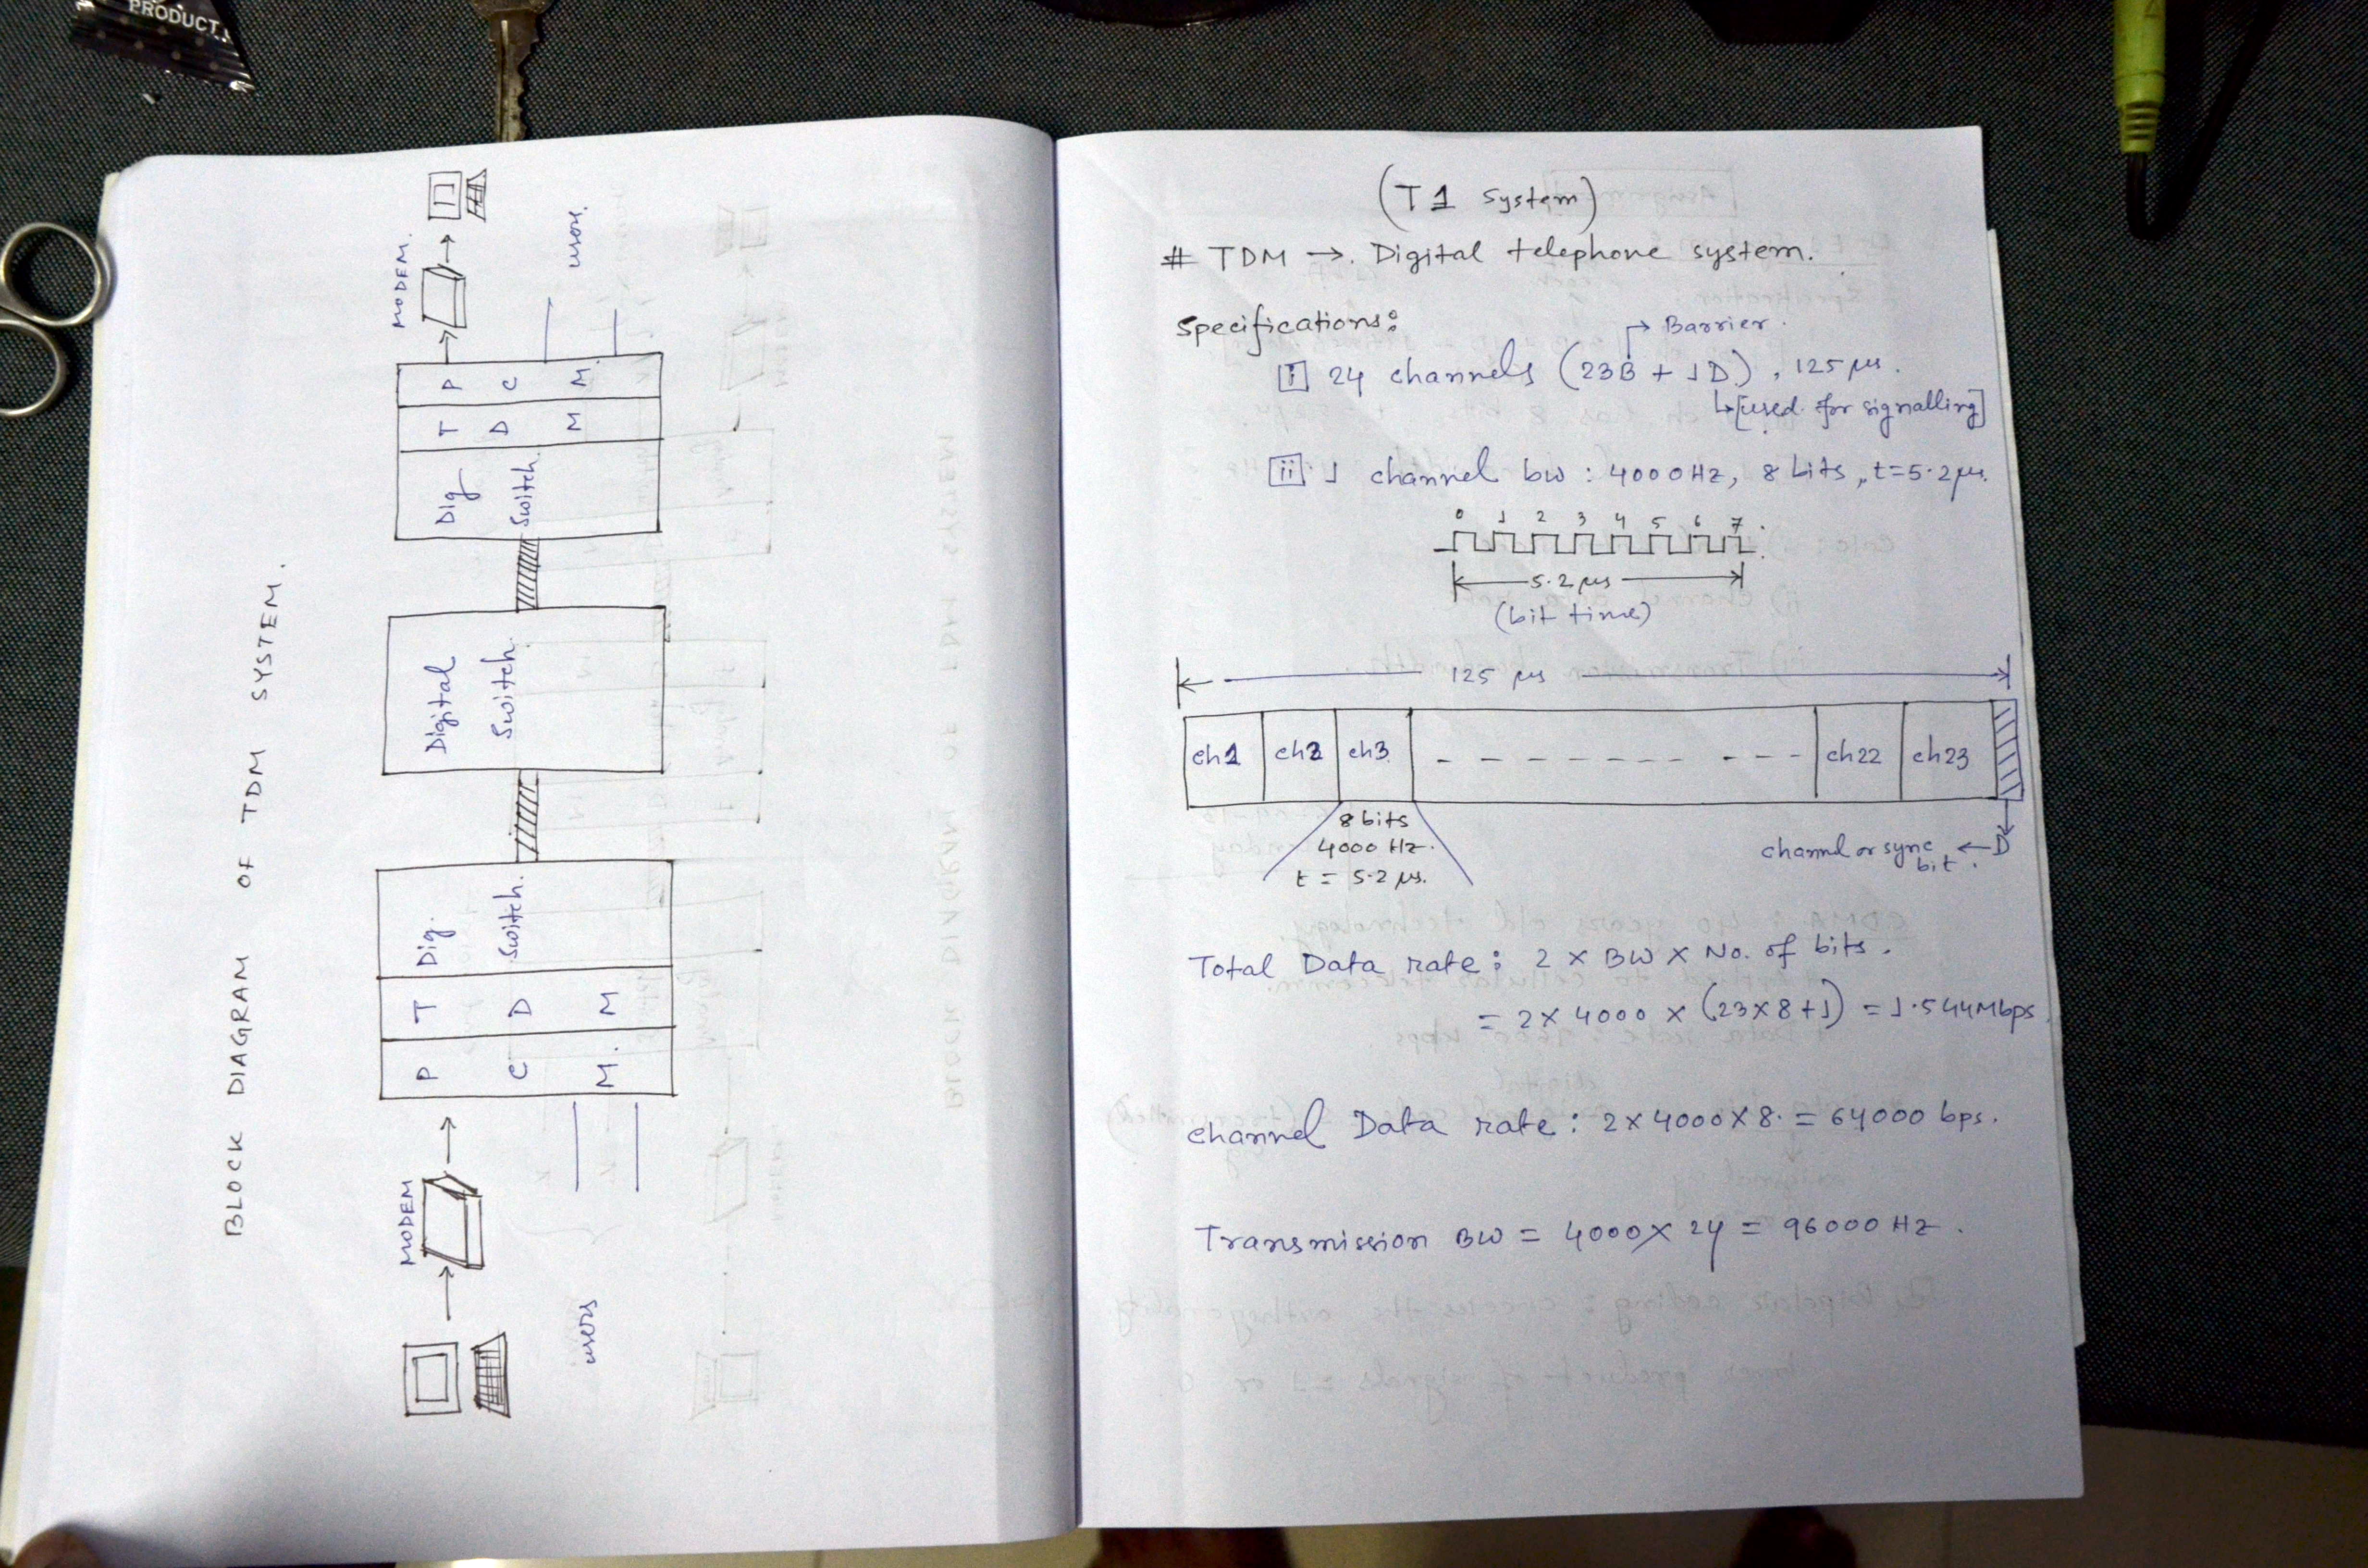 PRODUCT.
BLOCK DIAGRAM OF TDM SYSTEM.
MODEM
users
P C M.
T D M
Dig. Switch.
Digital Switch.
Dig Switch.
T D M
P C M.
MODEM.
user.
(T1 System)
# TDM →. Digital telephone system.
Specifications:
→ Barrier.
i 24 channels (23B + 1D), 125 μs.
↳ [used for signalling]
ii 1 channel bw : 4000 Hz, 8 bits, t=5.2 μs.
0 1 2 3 4 5 6 7
5.2 μs
(bit time)
125 μs
ch1 ch2 ch3 - - - - - - - - - - ch22 ch23
8 bits
4000 Hz.
t = 5.2 μs.
channel or sync bit. ← D
Total Data rate: 2 × BW × No. of bits.
= 2 × 4000 × (23×8+1) = 1.544Mbps.
channel Data rate : 2×4000×8. = 64000 bps.
Transmission BW = 4000× 24 = 96000 Hz.